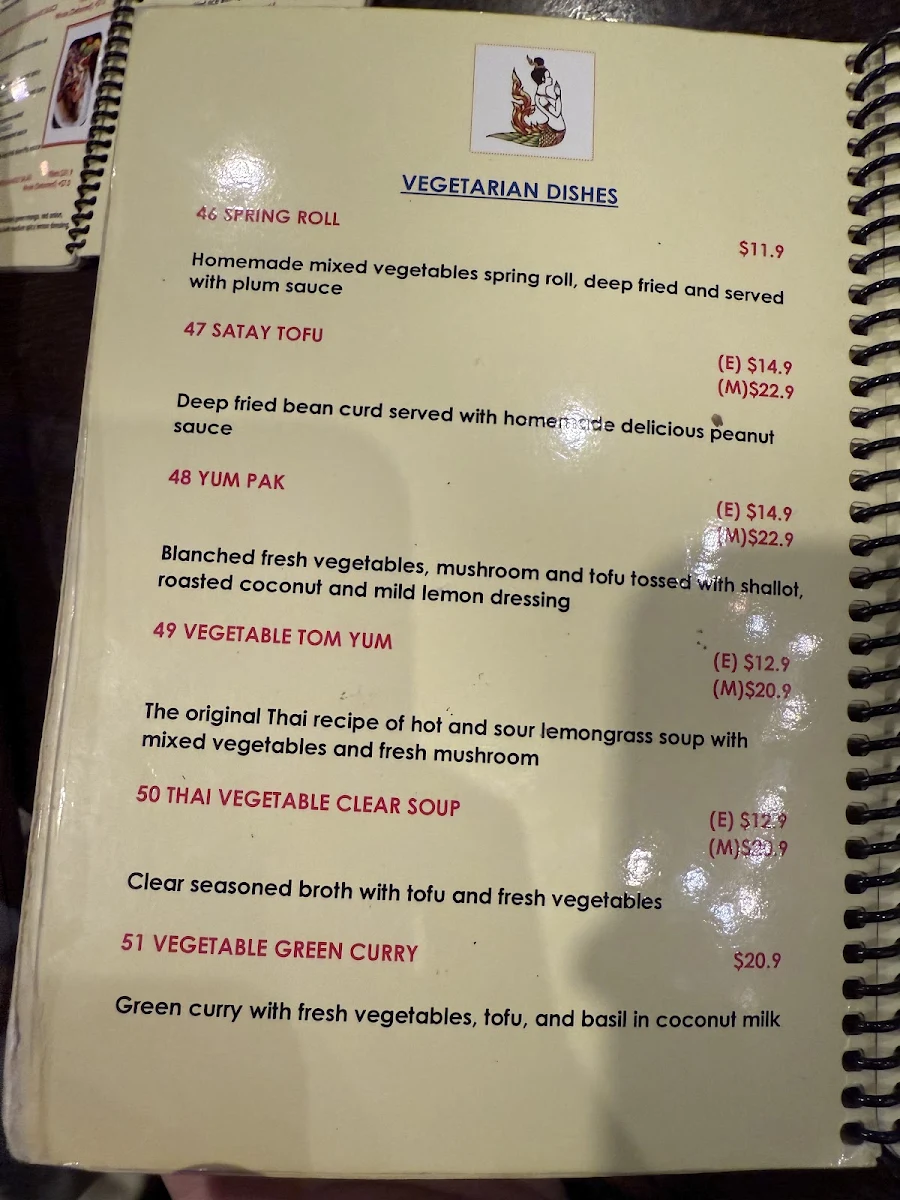 VEGETARIAN DISHES
46 SPRING ROLL
$11.9
Homemade mixed vegetables spring roll, deep fried and served
with plum sauce
47 SATAY TOFU
(E) $14.9
(M)$22.9
Deep fried bean curd served with homemade delicious peanut
sauce
48 YUM PAK
(E) $14.9
(M)$22.9
Blanched fresh vegetables, mushroom and tofu tossed with shallot,
roasted coconut and mild lemon dressing
49 VEGETABLE TOM YUM
(E) $12.9
(M)$20.9
The original Thai recipe of hot and sour lemongrass soup with
mixed vegetables and fresh mushroom
50 THAI VEGETABLE CLEAR SOUP
(E) $12.9
(M)$20.9
Clear seasoned broth with tofu and fresh vegetables
51 VEGETABLE GREEN CURRY
$20.9
Green curry with fresh vegetables, tofu, and basil in coconut milk